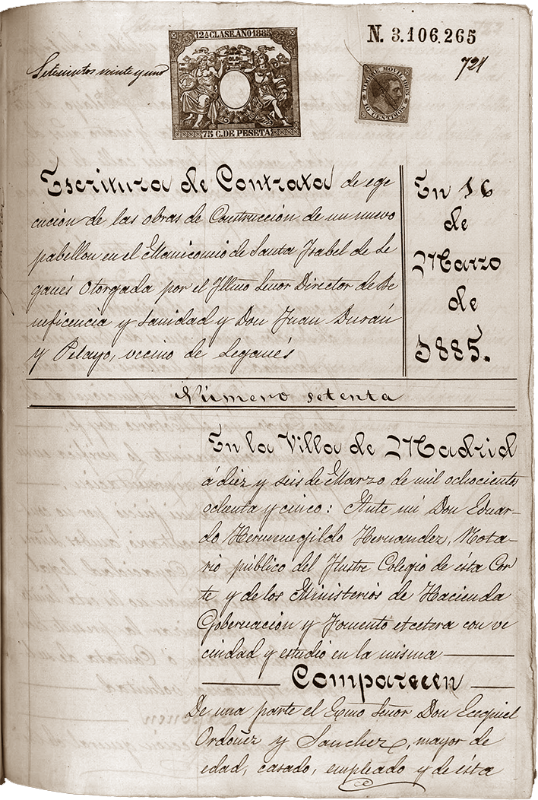 12ª CLASE. AÑO 1885
75 C. DE PESETA
N. 3.106,265
Setecientos veinte y uno
721
Escritura de Contrata de eje
cución de las obras de Construcción de un nuevo
pabellon en el Manicomio de Santa Isabel de Le
ganés Otorgada por el Illmo Señor Director de Be
neficencia y Sanidad y Don Juan Durán
y Pelayo, vecino de Leganés
En 16
de
Marzo
de
1885.
Número setenta
En la Villa de Madrid
á diez y seis de Marzo de mil ochocientos
ochenta y cinco: Ante mi Don Eduar
do Hermenegildo Hernandez, Nota
rio público del Ilustre Colegio de ésta Cor
te y de los Ministerios de Hacienda
Gobernación y Fomento etcetera con ve
cindad y estudio en la misma
Comparecen
De una parte el Exmo Señor Don Ezequiel
Ordoñez y Sanchez, mayor de
edad, casado, empleado y de ésta